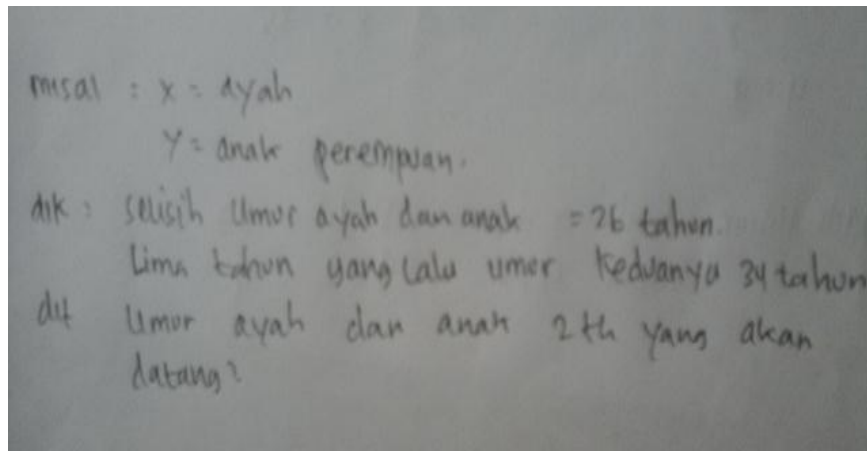 misal : x = ayah
Y = anak perempuan.
dik : selisih umur ayah dan anak = 26 tahun.
Lima tahun yang lalu umur keduanya 34 tahun
dit umur ayah dan anak 2 th yang akan
datang?